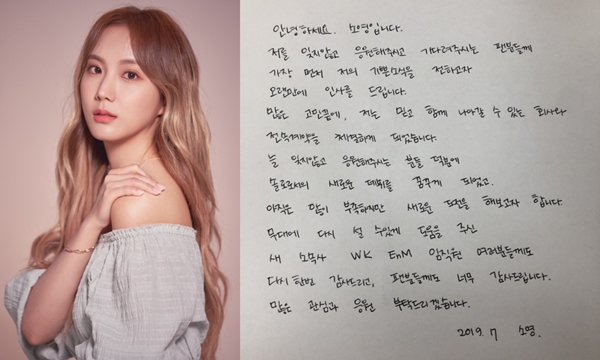 안녕하세요. 소영입니다.
저를 잊지않고 응원해주시고 기다려주시는 팬분들께
가장 먼저 저의 기쁜소식을 전하고자
오랜만에 인사를 드립니다.
많은 고민끝에, 저는 믿고 함께 나아갈 수 있는 회사와
전속계약을 체결하게 되었습니다.
늘 잊지않고 응원해주시는 분들 덕분에
솔로로서의 새로운 데뷔를 꿈꾸게 되었고,
아직은 많이 부족하지만 새로운 도전을 해보고자 합니다.
무대에 다시 설 수있게 도움을 주신
새 소속사 WK EnM 임직원 여러분들께도
다시 한번 감사드리고, 팬분들께도 너무 감사드립니다.
많은 관심과 응원 부탁드리겠습니다.
2019. 7 소영.